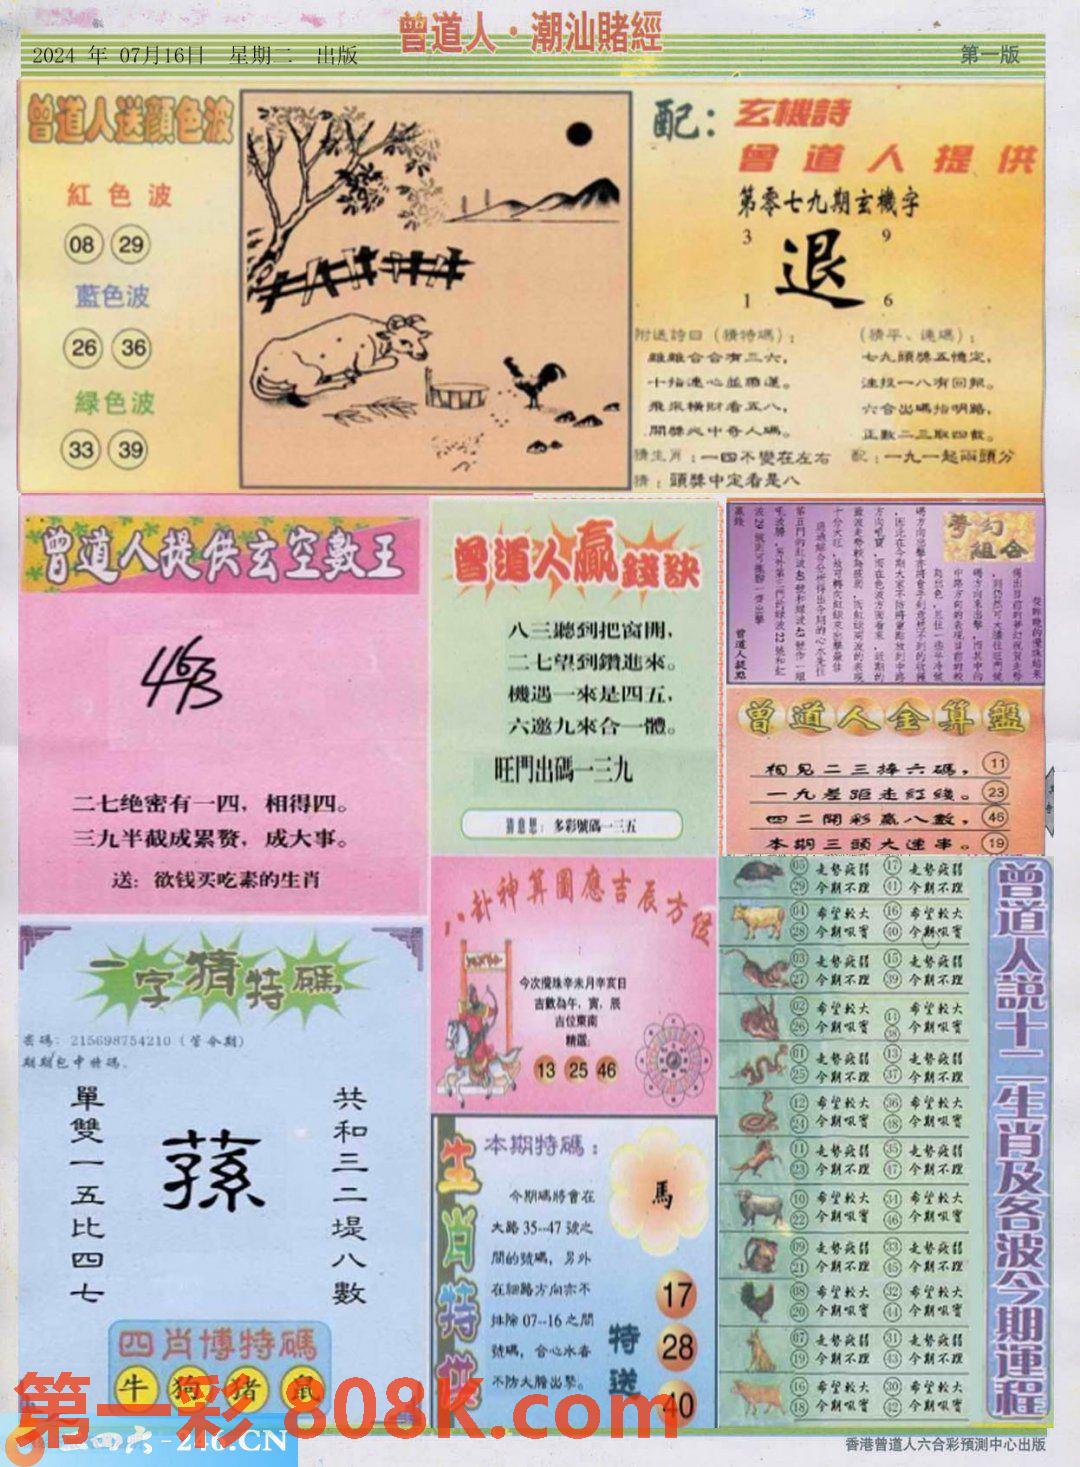 2024 年 07月16日 星期二 出版
曾道人·潮汕賭經
第一版
曾道人送顏色波
紅色波
08 29
藍色波
26 36
綠色波
33 39
配：玄機詩
曾道人提供
第零七九期玄機字
3 9
退
1 6
附送詩曰（猜特碼）：
雞雞合合有三六，
十指連心並聯運。
飛來橫財看五八，
開獎心中奇人碼。
猜生肖：一四不變在左右
猜：頭獎中定看是八
（猜平、連碼）：
七九頭獎五憶定，
注投一八有回報。
六合出碼指明路，
正數二三取四數。
配：一九一起兩頭分
曾道人提供玄空數王
463
二七绝密有一四，相得四。
三九半截成累赘，成大事。
送：欲钱买吃素的生肖
曾道人贏錢訣
八三聽到把窗開，
二七望到鑽進來。
機遇一來是四五，
六邀九來合一體。
旺門出碼一三九
猜意思：多彩號碼一三五
夢幻
組合
曾道人提點
曾道人金算盤
相見二三捧六碼， 11
一九差距走紅綫。 23
四二開彩贏八數， 46
本期三頭大連串。 19
八卦神算圖應吉辰方位
今次攪珠辛未月辛亥日
吉數為午，寅，辰
吉位東南
精選：
13 25 46
一字猜特碼
密碼：215698754210（管令期）
期期包中特碼.
單雙一五比四七
蓀
共和三二堤八數
四肖博特碼
牛 狗 猪 鼠
生肖特供
本期特碼：
今期碼將會在
大路35--47號之
間的號碼，另外
在細路方向亦不
排除07--16之間
號碼，合心水者
不防大膽出擊。
馬
特送
17
28
40
05 走勢疲弱 17 走勢疲弱
29 今期不理 41 今期不理
04 希望較大 16 希望較大
28 今期吸實 40 今期吸實
03 走勢疲弱 15 走勢疲弱
27 今期不理 39 今期不理
02 希望較大 14 希望較大
26 今期吸實 38 今期吸實
01 走勢疲弱 13 走勢疲弱
25 今期不理 37 今期不理
12 希望較大 36 希望較大
24 今期吸實 48 今期吸實
11 走勢疲弱 35 走勢疲弱
23 今期不理 47 今期不理
10 希望較大 34 希望較大
22 今期吸實 46 今期吸實
09 走勢疲弱 33 走勢疲弱
21 今期不理 45 今期不理
08 希望較大 32 希望較大
20 今期吸實 44 今期吸實
07 走勢疲弱 31 走勢疲弱
19 今期不理 43 今期不理
16 希望較大 30 希望較大
18 今期吸實 42 今期吸實
曾道人說十二生肖及各波今期運程
第一彩 808K.com
二四六-246.CN
香港曾道人六合彩預測中心出版